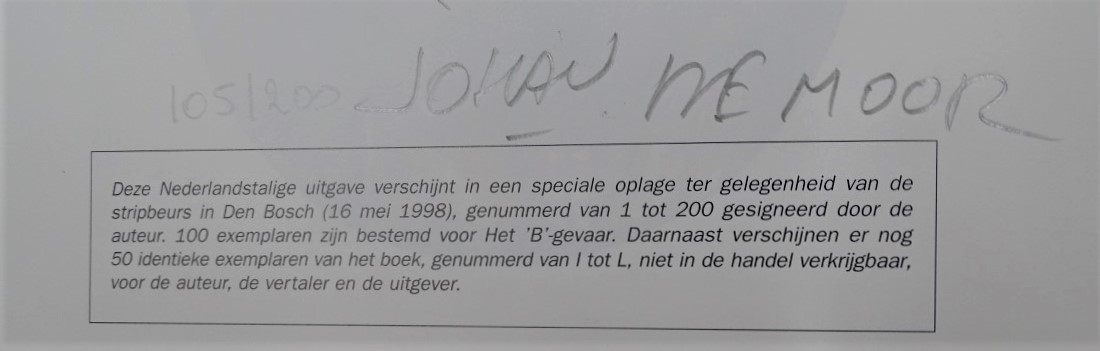 105/200 JOHAN DE MOOR
Deze Nederlandstalige uitgave verschijnt in een speciale oplage ter gelegenheid van de
stripbeurs in Den Bosch (16 mei 1998), genummerd van 1 tot 200 gesigneerd door de
auteur. 100 exemplaren zijn bestemd voor Het 'B'-gevaar. Daarnaast verschijnen er nog
50 identieke exemplaren van het boek, genummerd van I tot L, niet in de handel verkrijgbaar,
voor de auteur, de vertaler en de uitgever.